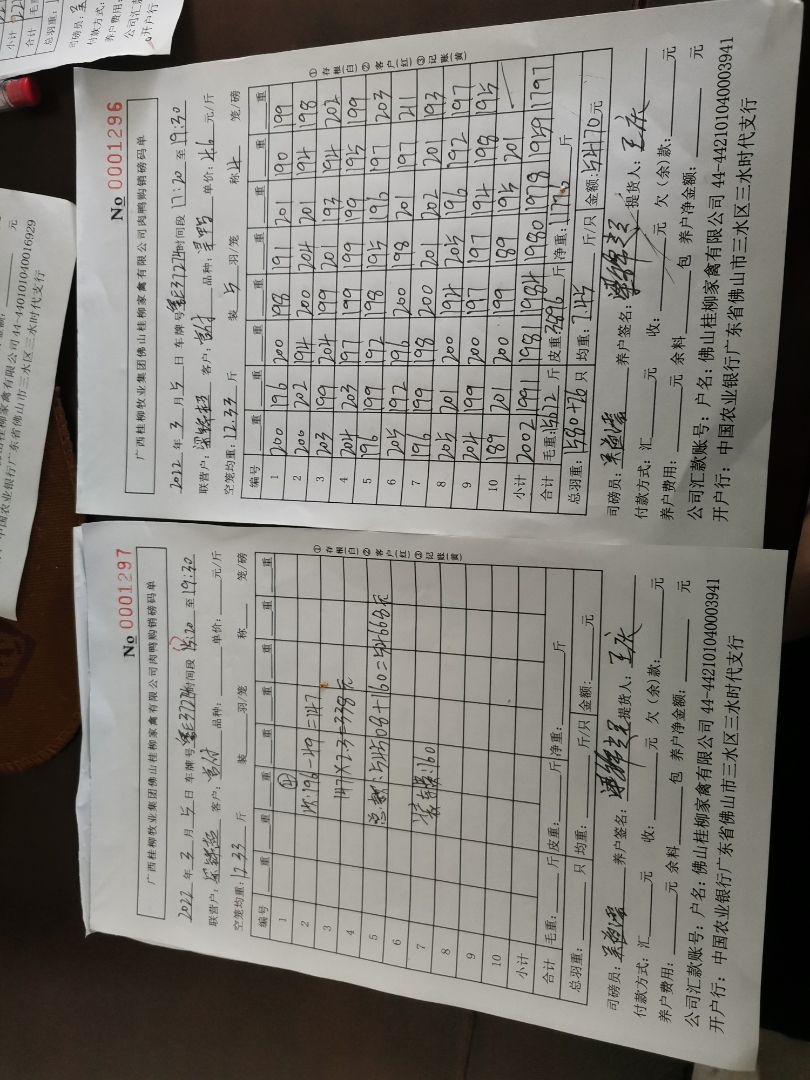 No 0001296
广西桂柳牧业集团佛山桂柳家禽有限公司肉鸭购销磅码单
2022 年 3 月 5 日 车牌号 时间段 17:20 至 19:30
联营户: 客户: 品种: 单价: 4.6 元/斤
空笼均重: 12.33 斤 装 5 羽/笼 称 4 笼/磅
编号 重 重 重 重 重 重 重 重
1 200 196 200 198 191 201 190 199
2 200 202 194 200 204 201 194 198
3 203 199 204 199 201 193 194 202
4 204 203 197 199 199 199 195 199
5 196 199 192 198 195 196 197 203
6 205 192 196 200 198 201 197 211
7 196 199 198 200 201 202 201 193
8 205 201 200 194 205 196 192 197
9 204 199 200 197 197 194 198 195
10 189 201 200 199 189 195 201
小计 2002 1991 1981 1984 1980 1978 1959 1797
合计 毛重: 15672 斤 皮重: 3896 斤 净重: 11776 斤
总羽重: 1580+26 只 均重: 7.45 斤/只 金额: 54170 元
司磅员: 养户签名: 提货人: 王庆
付款方式: 汇 元 收: 元 欠(余)款: 元
养户费用: 元 余料 包 养户净金额: 元
公司汇款账号: 户名: 佛山桂柳家禽有限公司 44-442101040003941
开户行: 中国农业银行广东省佛山市三水区三水时代支行
①存根(白)②客户(红)③记账(黄)
No 0001297
广西桂柳牧业集团佛山桂柳家禽有限公司肉鸭购销磅码单
2022 年 3 月 5 日 车牌号 时间段 :20 至 19:30
联营户: 客户: 品种: 单价: 元/斤
空笼均重: 12.33 斤 装 羽/笼 称 笼/磅
编号 重 重 重 重 重 重 重 重
1
2 次: 196-49=147
3 147×2.3=338元
4
5 总款: 54508+160=54668元
6
7 装车费: 160
8
9
10
小计
合计 毛重: 斤 皮重: 斤 净重: 斤
总羽重: 只 均重: 斤/只 金额: 元
司磅员: 养户签名: 提货人: 王庆
付款方式: 汇 元 收: 元 欠(余)款: 元
养户费用: 元 余料 包 养户净金额: 元
公司汇款账号: 户名: 佛山桂柳家禽有限公司 44-442101040003941
开户行: 中国农业银行广东省佛山市三水区三水时代支行
①存根(白)②客户(红)③记账(黄)
元
44-440101040016929
中国农业银行广东省佛山市三水区三水时代支行
小计
合计
总羽重:
司磅员:
付款方式:
养户费用:
公司汇款
开户行: